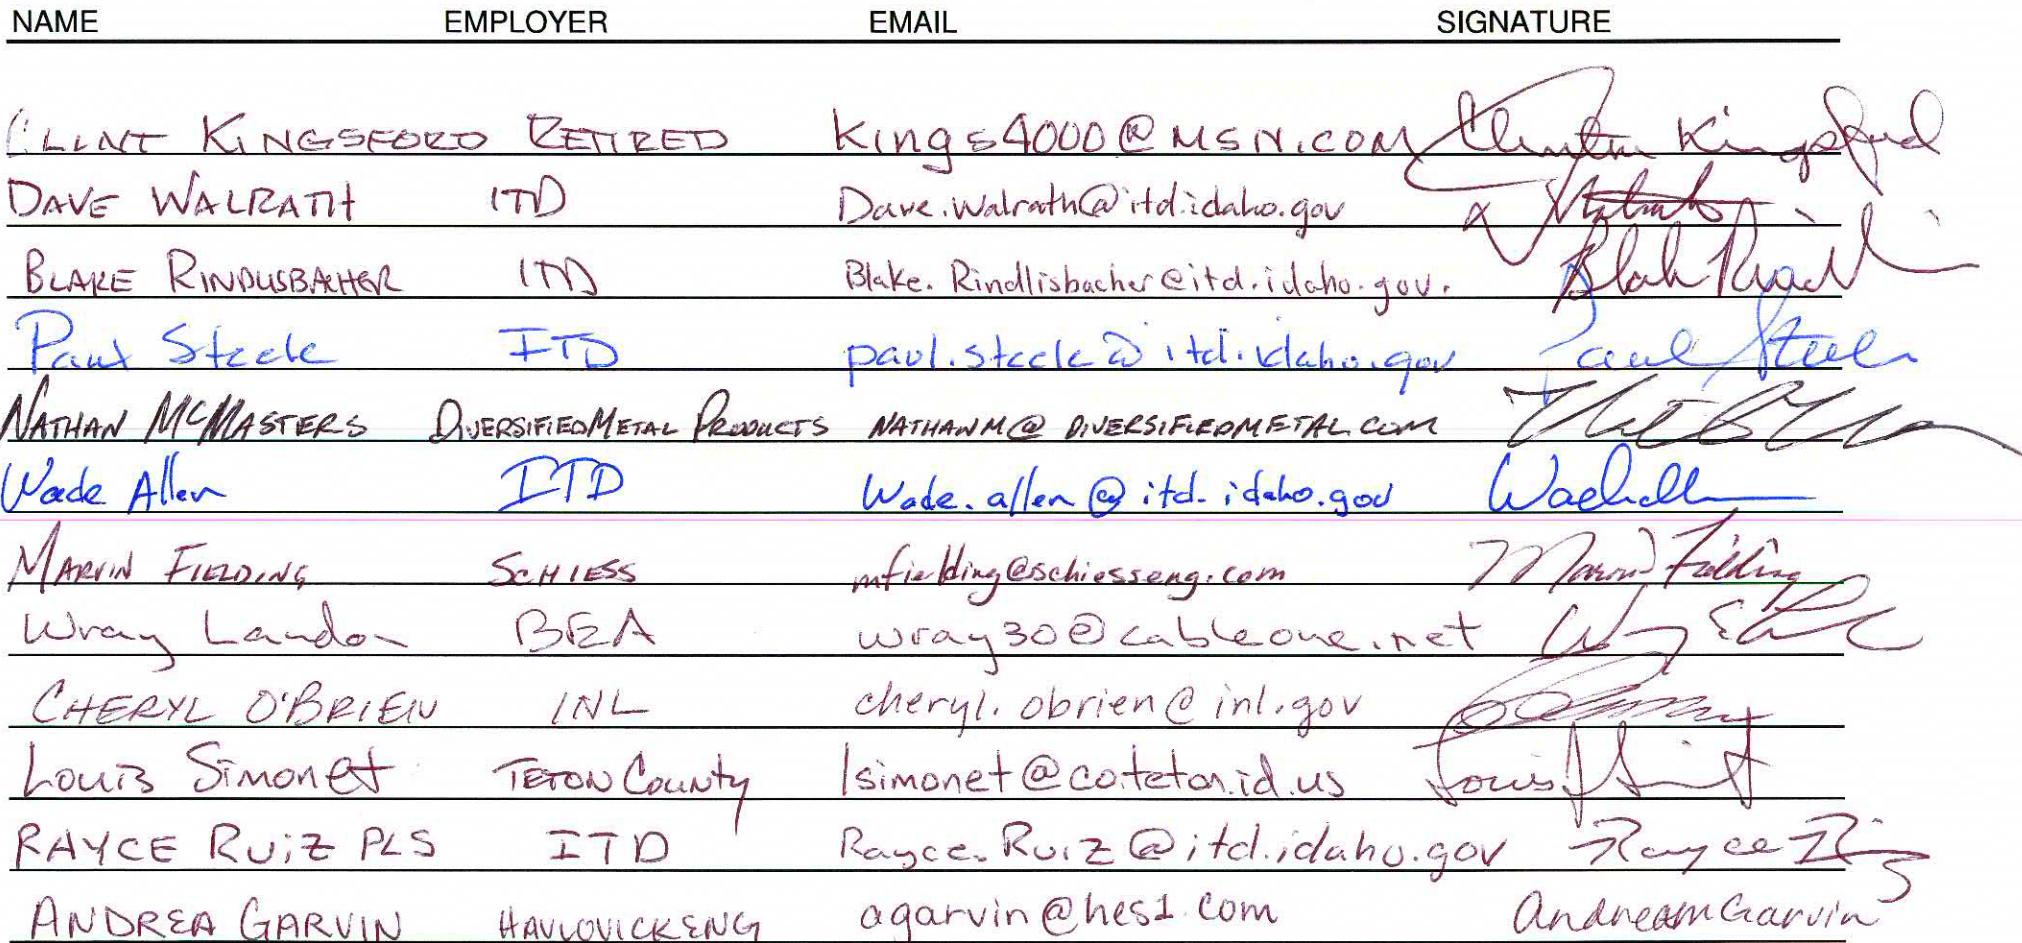 NAME EMPLOYER EMAIL SIGNATURE
CLINT KINGSFORD RETIRED Kings4000@MSN.COM Clinton Kingsford
DAVE WALRATH ITD Dave.Walrath@itd.idaho.gov
BLAKE RINDLISBACHER ITD Blake.Rindlisbacher@itd.idaho.gov.
Paul Steele ITD paul.steele@itd.idaho.gov Paul Steele
NATHAN MCMASTERS DIVERSIFIED METAL PRODUCTS NATHANM@DIVERSIFIEDMETAL.COM
Wade Allen ITD Wade.allen@itd.idaho.gov
MARVIN FIELDING SCHIESS mfielding@schiesseng.com Marvin Fielding
Wray Landon BEA wray30@cableone.net
CHERYL O'BRIEN INL cheryl.obrien@inl.gov
Louis Simonet TETON County lsimonet@co.teton.id.us
RAYCE RUIZ PLS ITD Rayce.Ruiz@itd.idaho.gov
ANDREA GARVIN HAVLOVICK ENG agarvin@hes1.com Andrea M Garvin